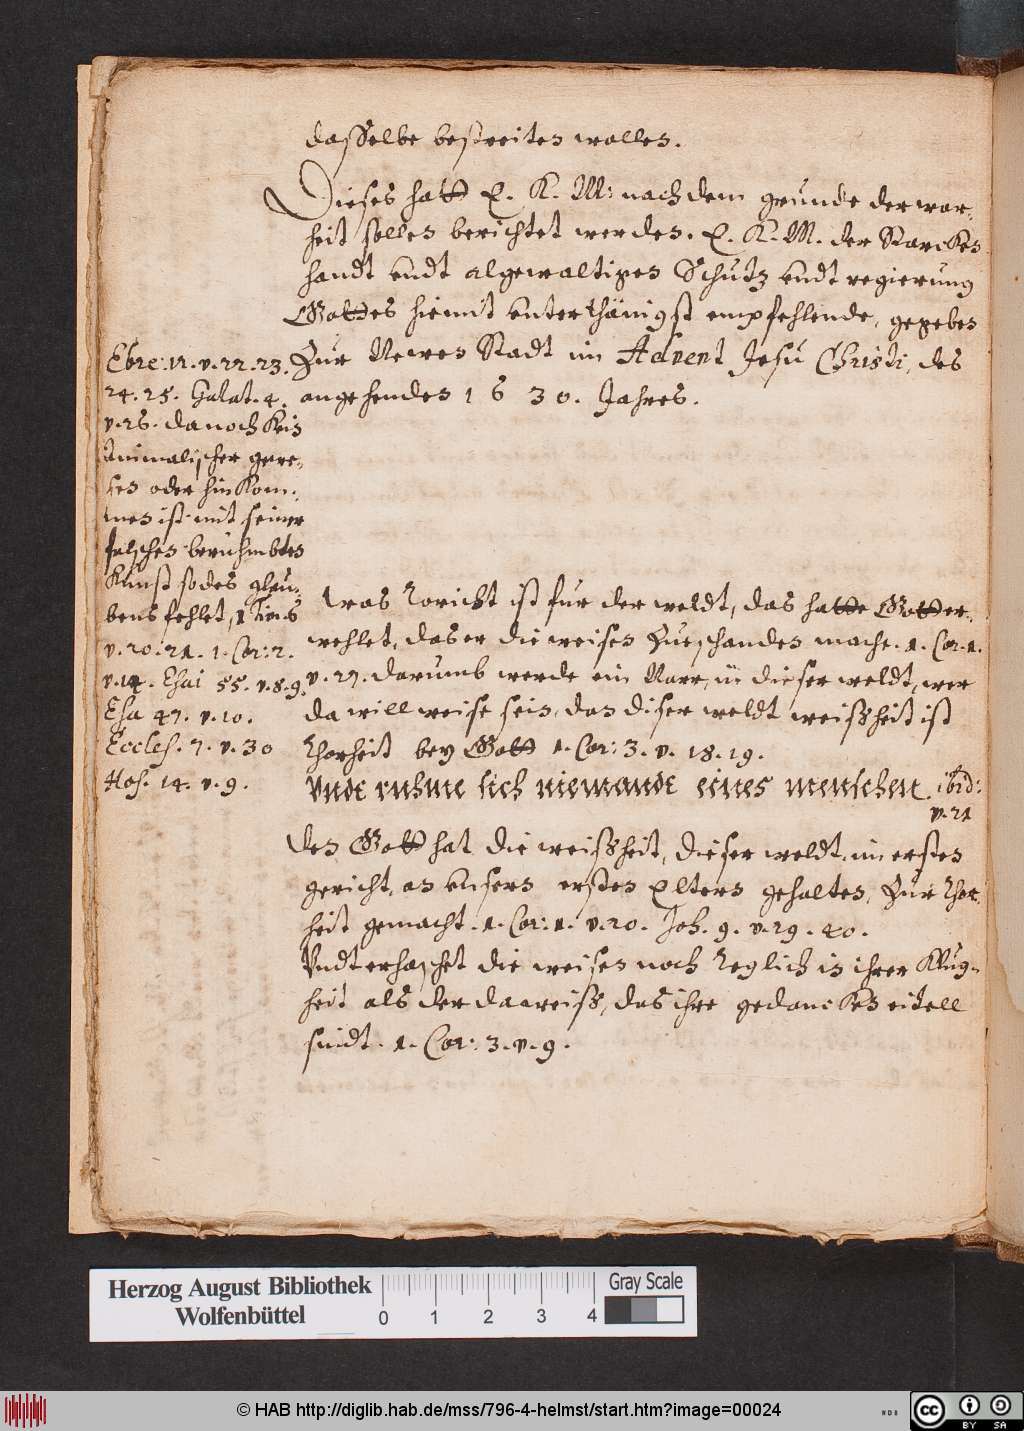 dasselbe bestreiten wollen.
Dieses hatt E. K. M: nach dem grunde der war-
heit sollen berichtet werden. E. K. M. der Starcken
handt undt algewaltigen Schutz undt regierung
Gottes hiemit unterthänigst empfehlende, gegeben
Zur Newen Stadt im Advent Jesu Christi, des
angehenden 1630. Jahres.
Ebre: 12. v. 22. 23.
24. 25. Galat. 4.
v. 26. da noch kein
Animalischer
oder hin kom-
men ist mit seiner
falschen berühmbten
Kunst so des glau-
bens fehlet, 1 Tim. 6
v. 20. 21. 1. Cor: 2.
v. 14. Esai 55. v. 8. 9.
Esa 47. v. 10.
Eccles. 7. v. 30
Hos. 14. v. 9.
Was thoricht ist fur der weldt, das hatte Gott er-
wehlet, das er die weisen Zueschanden mache. 1. Cor. 1.
v. 27. darumb werde ein Narr, in dieser weldt, wer
da will weise sein, dan diser weldt weißheit ist
thorheit bey Gott 1. Cor: 3. v. 18. 19.
Vndt ruhme sich niemandt eines menschen. ibid:
v. 21
den Gott hat die weißheit, dieser weldt, im ersten
gericht, an unsern ersten Eltern gehalten, Zur thor-
heit gemacht. 1. Cor: 1. v. 20. Joh. 9. v. 29. 40.
Undt erhaschet die weisen noch teglich in ihrer Klug-
heit als der da weiß, das ihre gedancken eitell
sindt. 1. Cor: 3. v. 9.
Herzog August Bibliothek
Wolfenbüttel
0 1 2 3 4
Gray Scale
© HAB http://diglib.hab.de/mss/796-4-helmst/start.htm?image=00024
WDB
cc BY SA